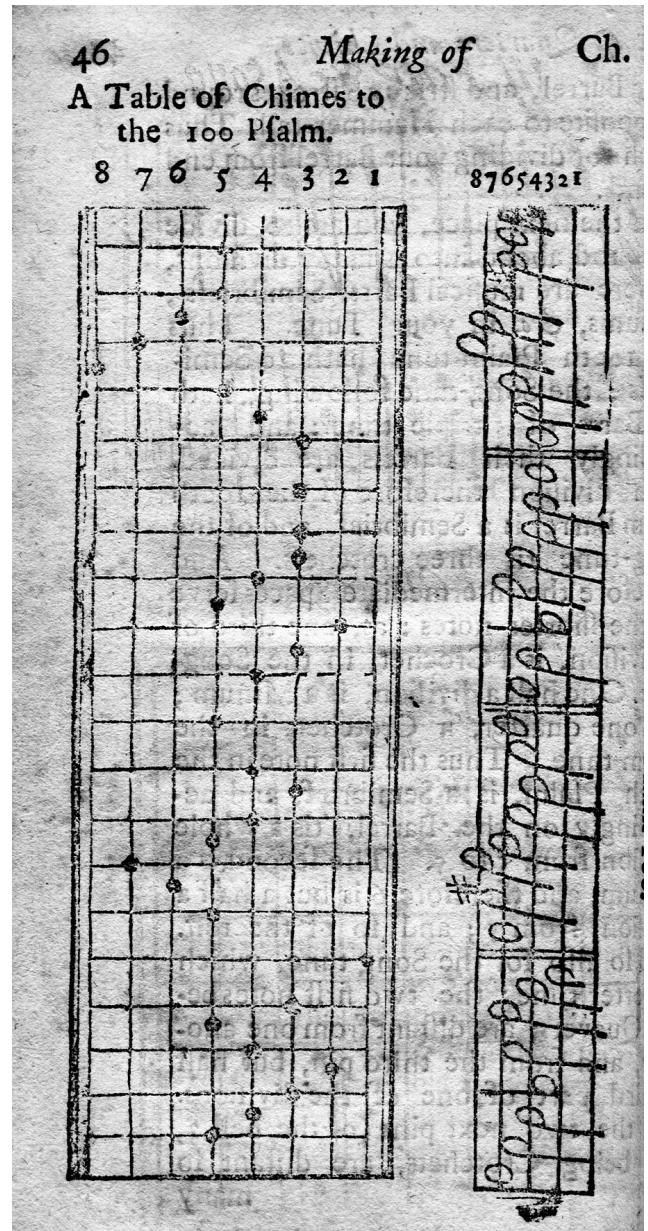 46 Making of Ch.
A Table of Chimes to
the 100 Pſalm.
8 7 6 5 4 3 2 1 87654321